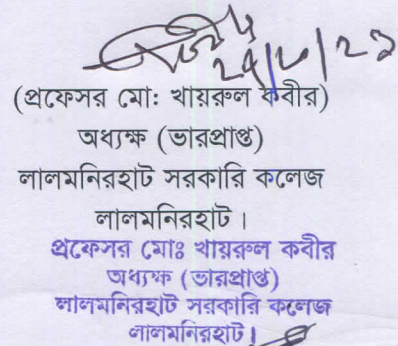 (প্রফেসর মো: খায়রুল কবীর)
অধ্যক্ষ (ভারপ্রাপ্ত)
লালমনিরহাট সরকারি কলেজ
লালমনিরহাট।
প্রফেসর মোঃ খায়রুল কবীর
অধ্যক্ষ (ভারপ্রাপ্ত)
লালমনিরহাট সরকারি কলেজ
লালমনিরহাট।